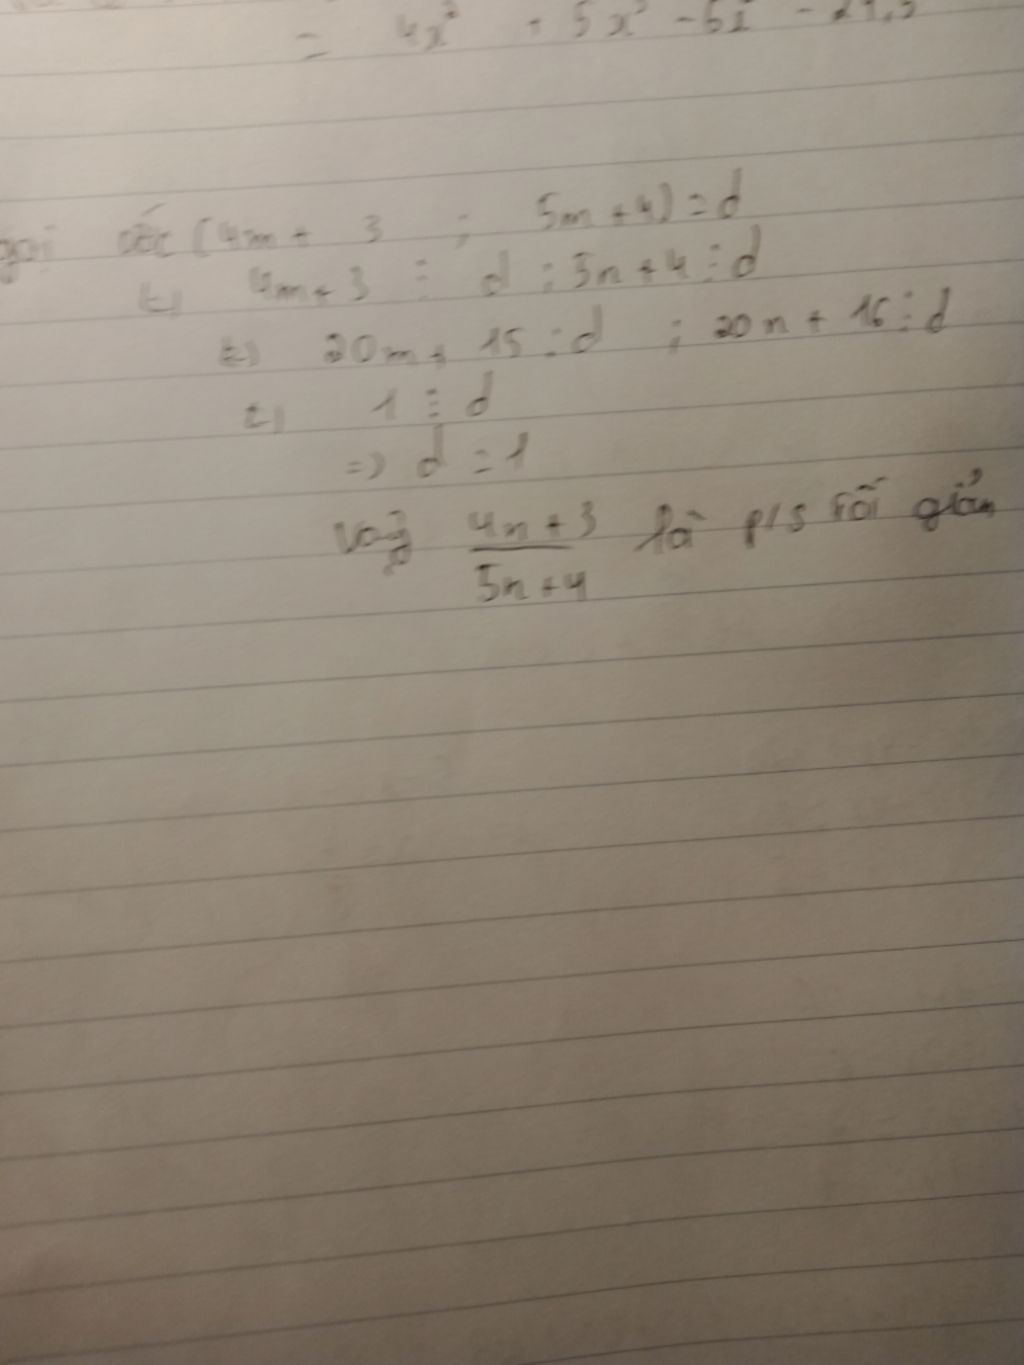 = 4x² + 5x² - 5x -
gọi ƯC (4n + 3 ; 5n + 4) = d
=) 4n + 3 ⋮ d ; 5n + 4 ⋮ d
=) 20n + 15 ⋮ d ; 20n + 16 ⋮ d
=) 1 ⋮ d
=) d = 1
Vậy 4n + 3 / 5n + 4 là p/s tối giản